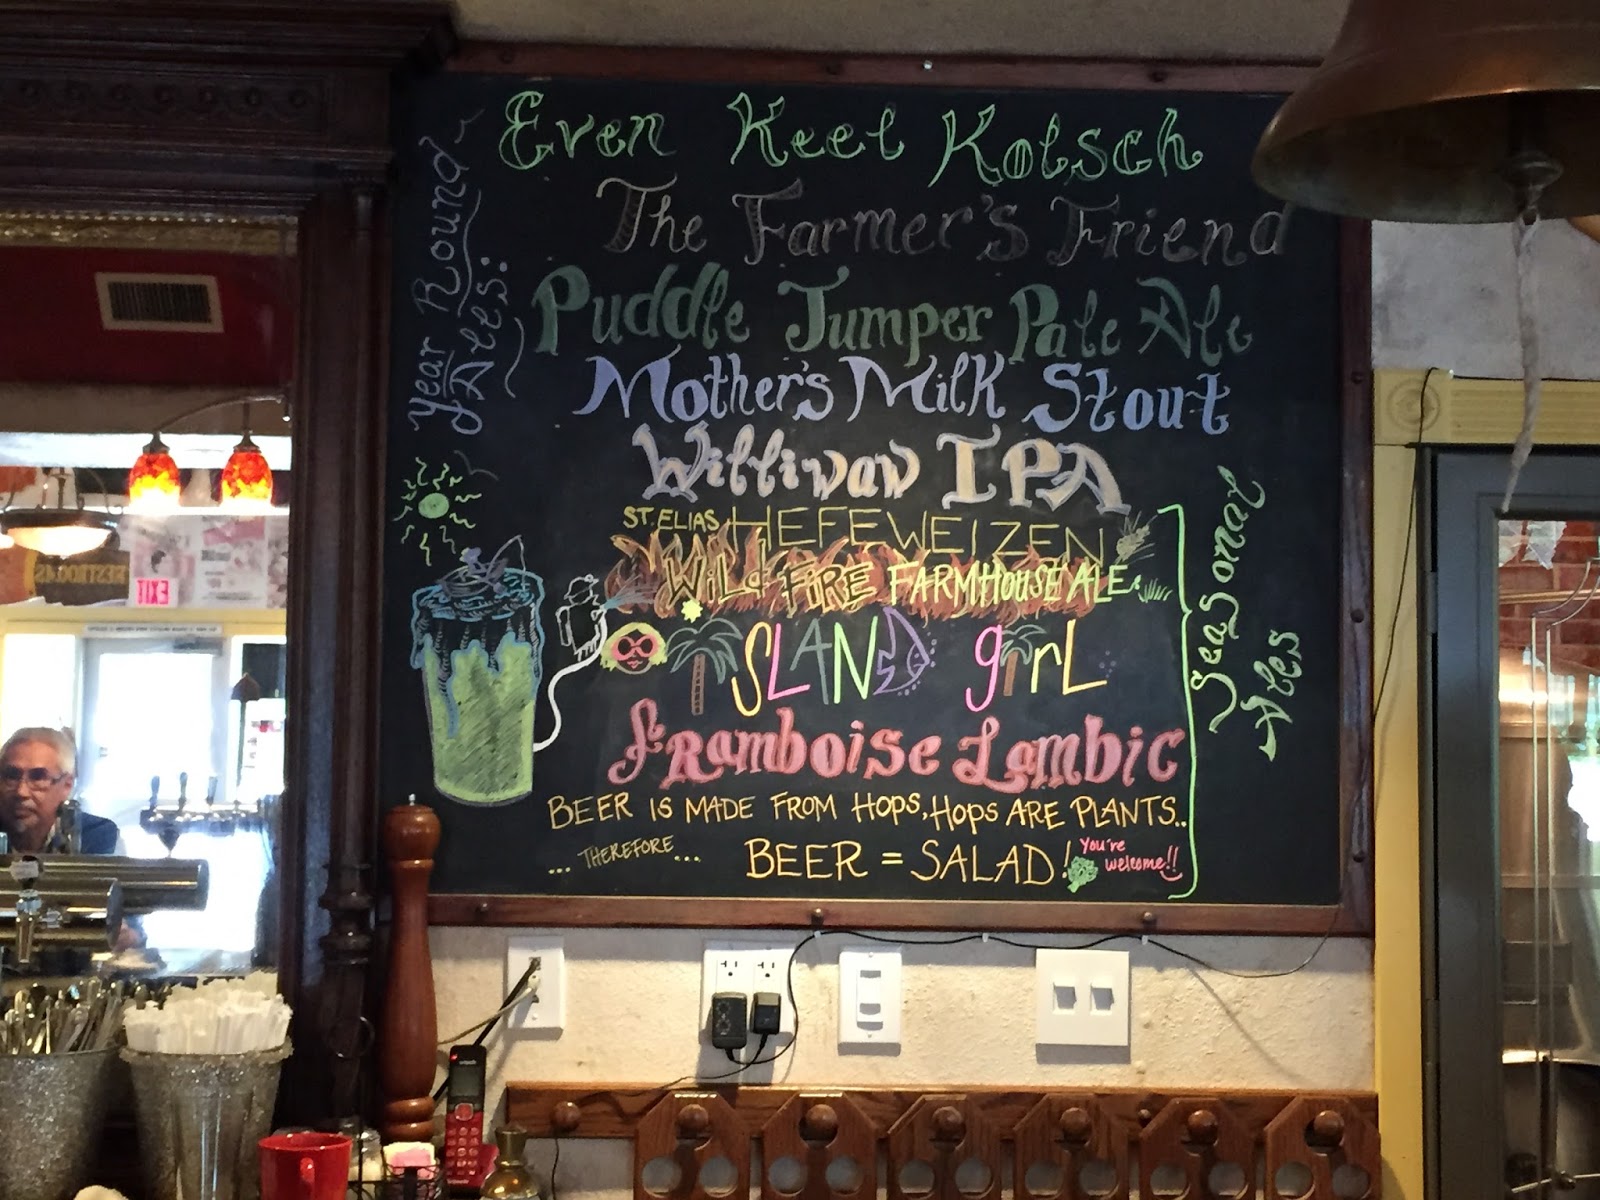 Year Round
Ales:
Even Keel Kolsch
The Farmer's Friend
Puddle Jumper Pale Ale
Mother's Milk Stout
Williwaw IPA
Seasonal
Ales
ST. ELIAS HEFEWEIZEN
WILD FIRE FARMHOUSE ALE
ISLAND gIrL
Framboise Lambic
BEER IS MADE FROM HOPS, HOPS ARE PLANTS..
... THEREFORE... BEER = SALAD!
You're
welcome!!
EXIT